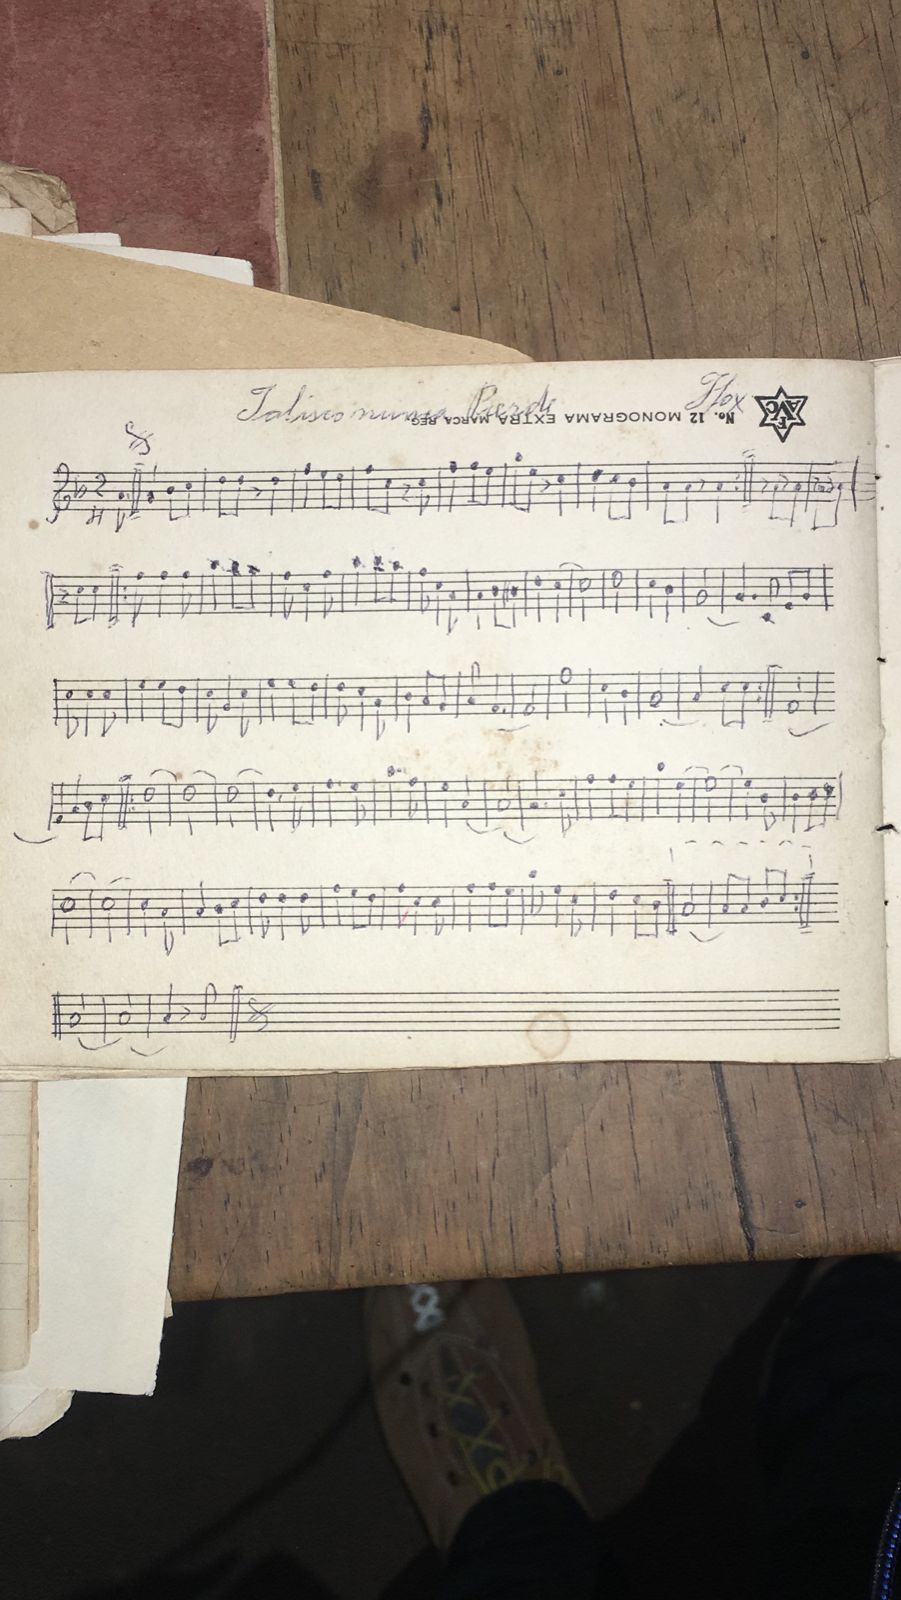 Jalisco nunca Pierde
Flox
No. 12 MONOGRAMA EXTRA MARCA REG.
F
AVC
2
4